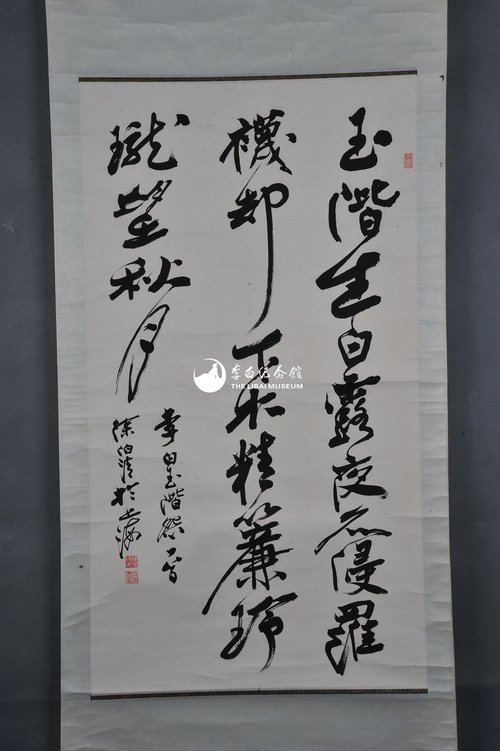 玉階生白露夜久侵羅
襪却下水精簾玲
瓏望秋月
李白玉階怨一首
於上海
李白纪念馆
THE LIBAI MUSEUM